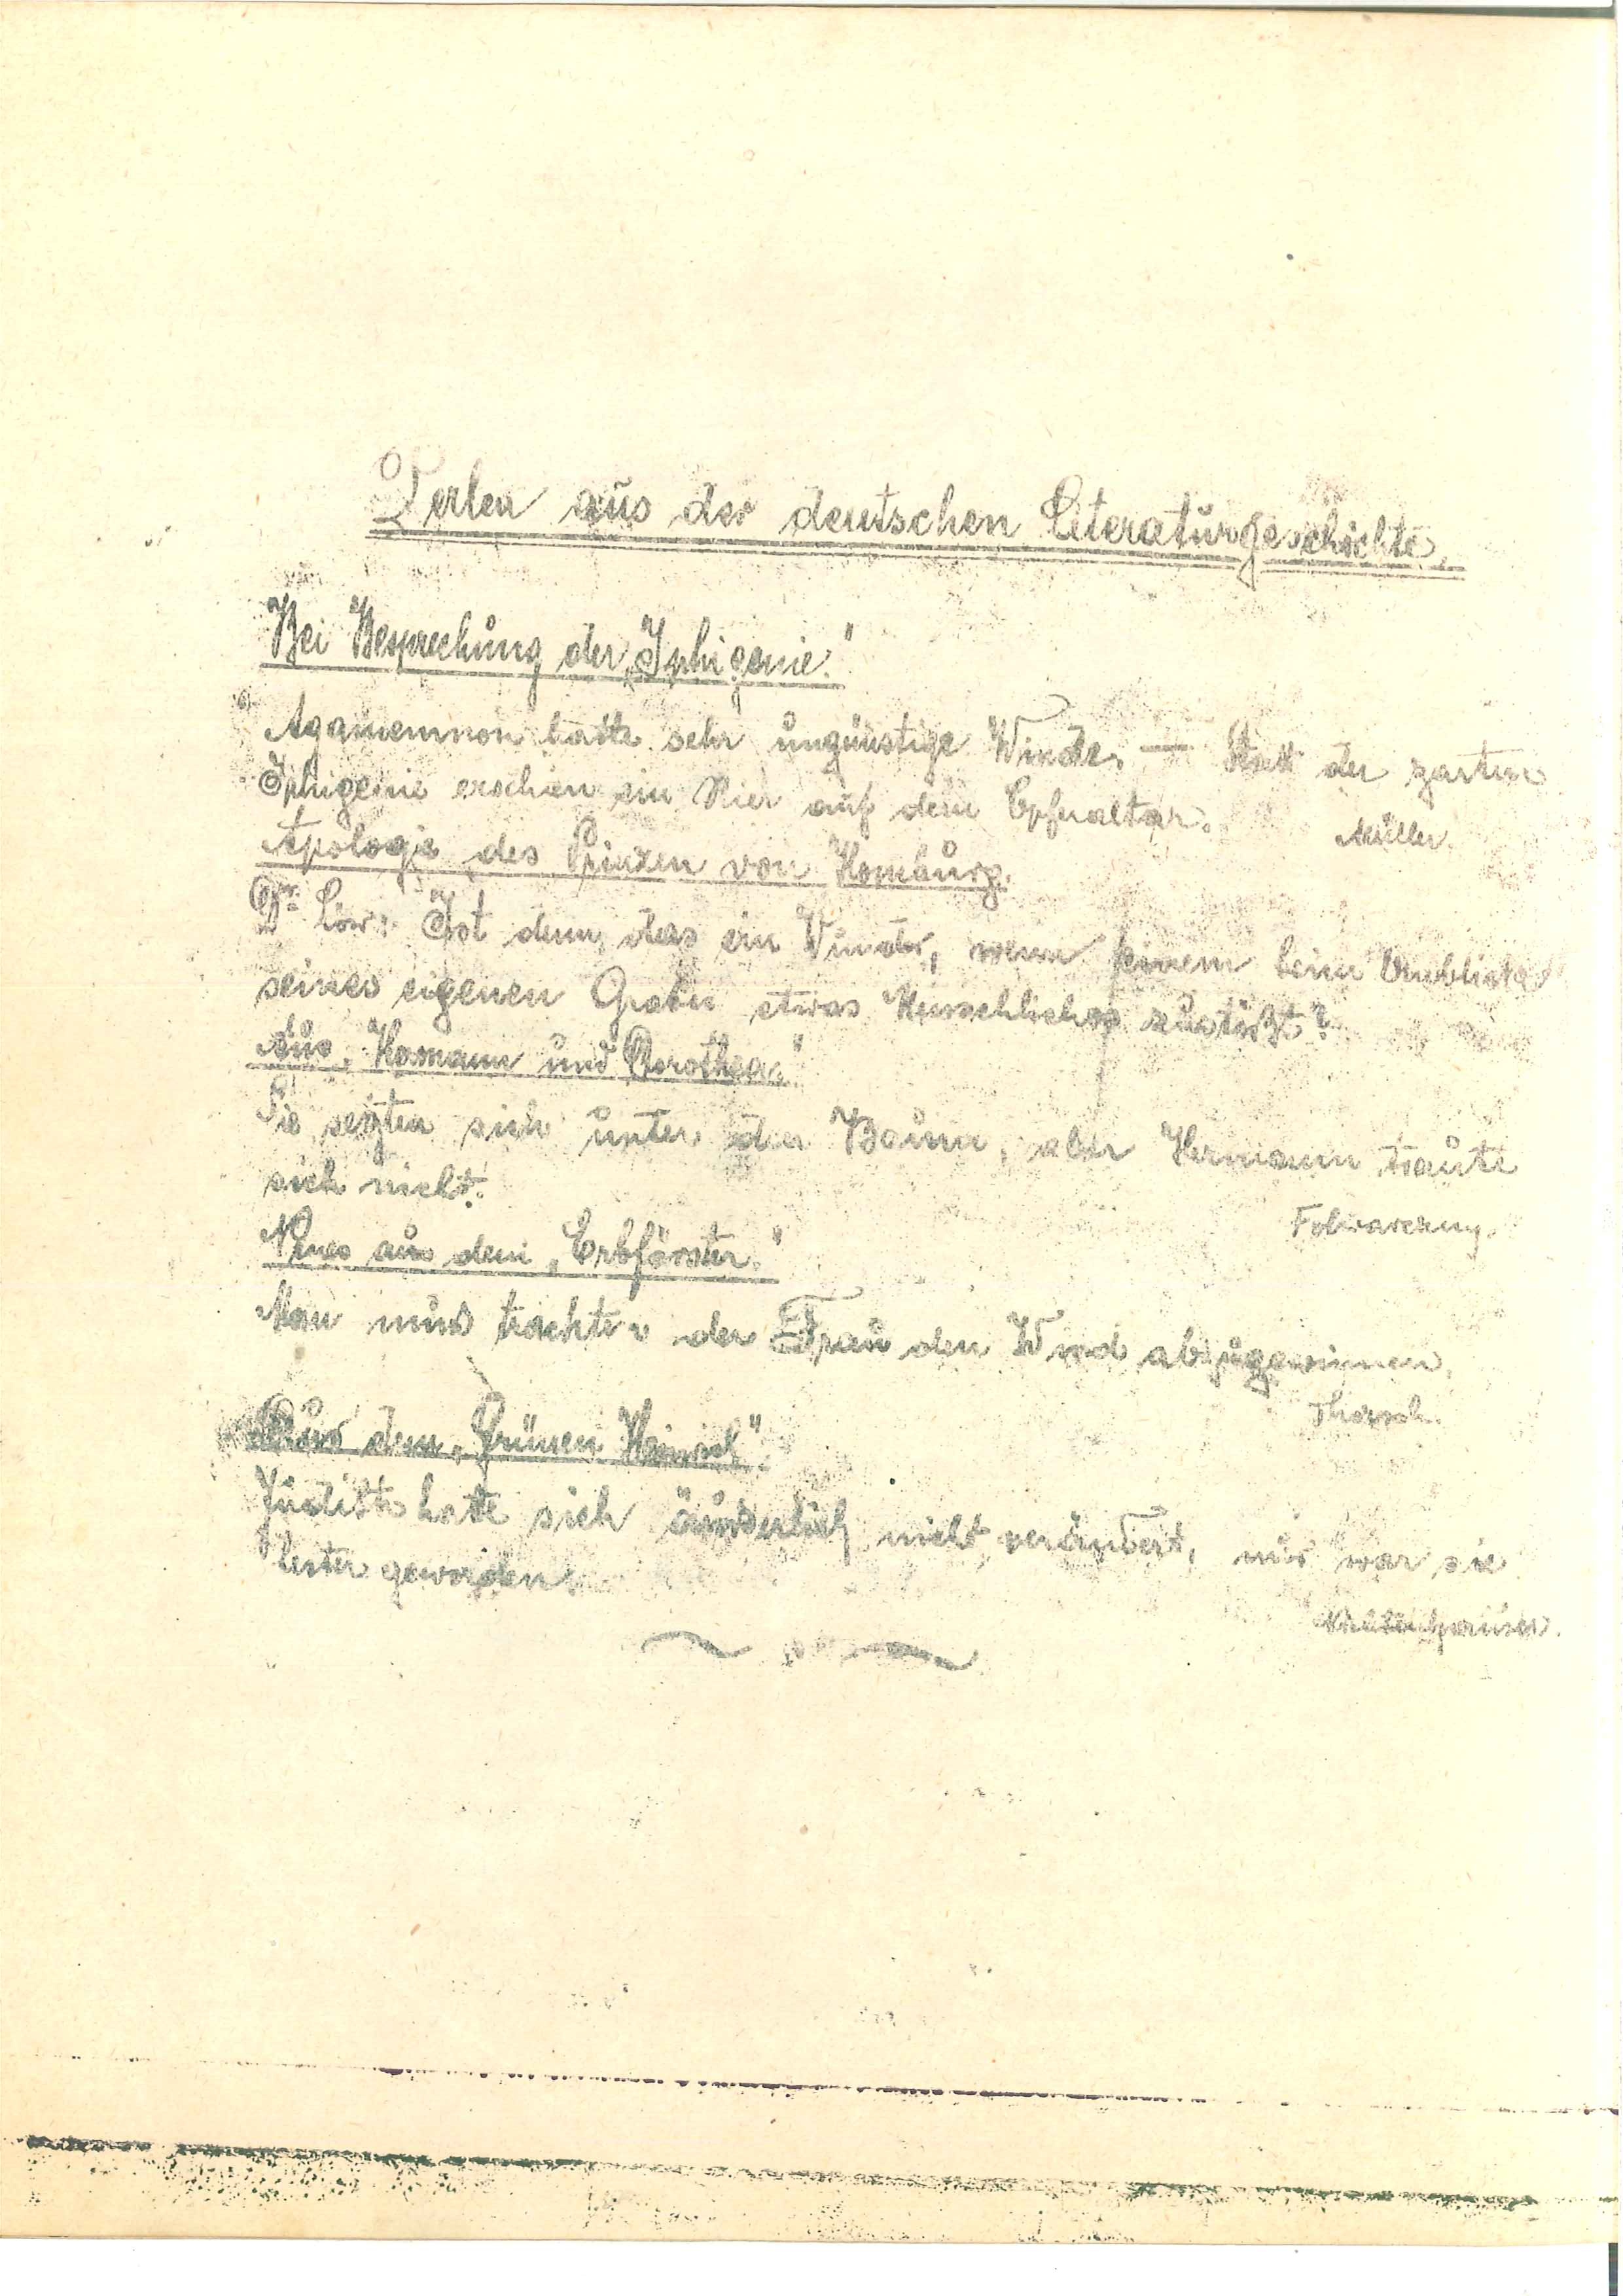 Perlen aus der deutschen Literaturgeschichte.
Bei Besprechung der „Iphigenie."
Agamemnon hatte sehr ungünstige Winde. — Statt der zarten
Iphigenie erschien ein Stier auf dem Opferaltar.
Müller.
Apologie des Prinzen von Homburg.
Dr. Löw: Ist denn das ein Wunder, wenn einem beim Anblicke
seines eigenen Grabes etwas Menschliches zustößt?
Aus „Hermann und Dorothea."
Sie setzten sich unter den Baum, aber Hermann traute
sich nicht.
Folwarczny.
Neues aus dem „Erbförster."
Man muss trachten der Frau den Wind abzugewinnen.
Thorsch.
Aus dem „Grünen Heinrich".
Judith hatte sich äusserlich nicht verändert, nur war sie
fester geworden.